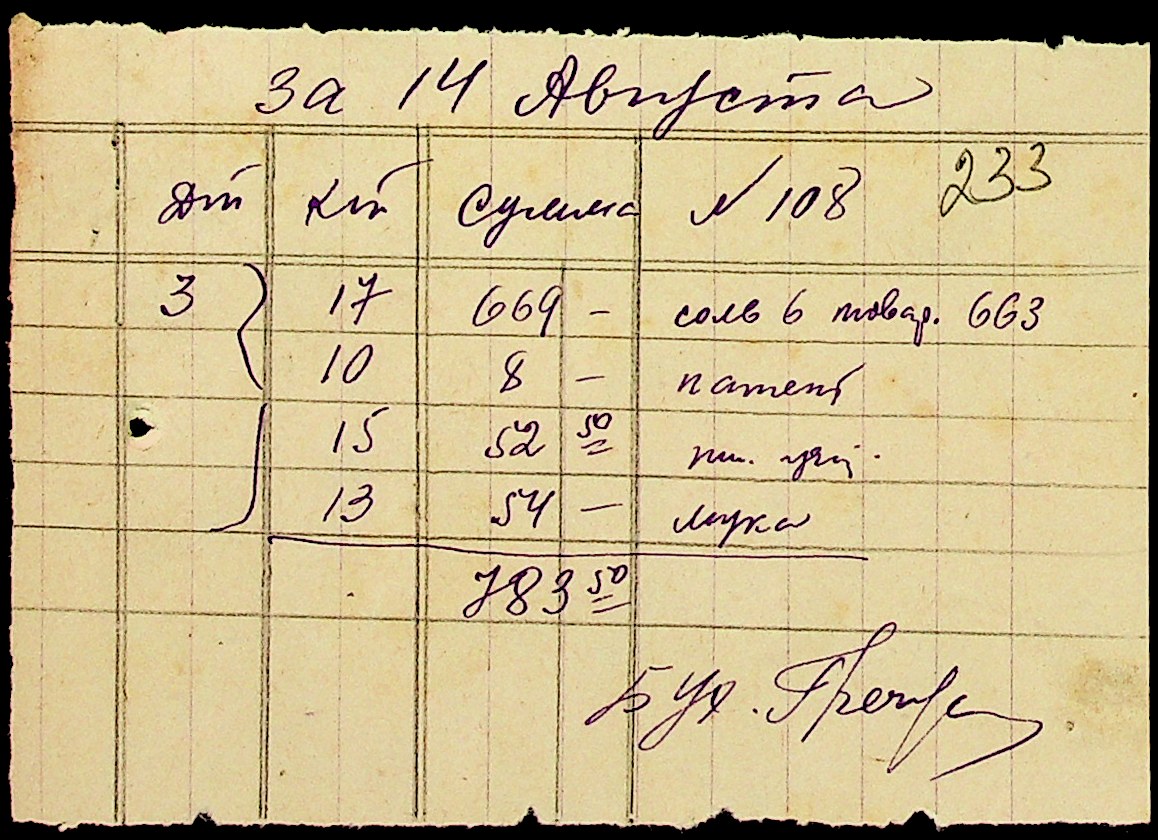 за 14 Августа
Дт Кт Сумма № 108 233
3 17 669 – соль в товар. 663
10 8 – патент
15 52 50
13 54 – мука
783 50
Бух.